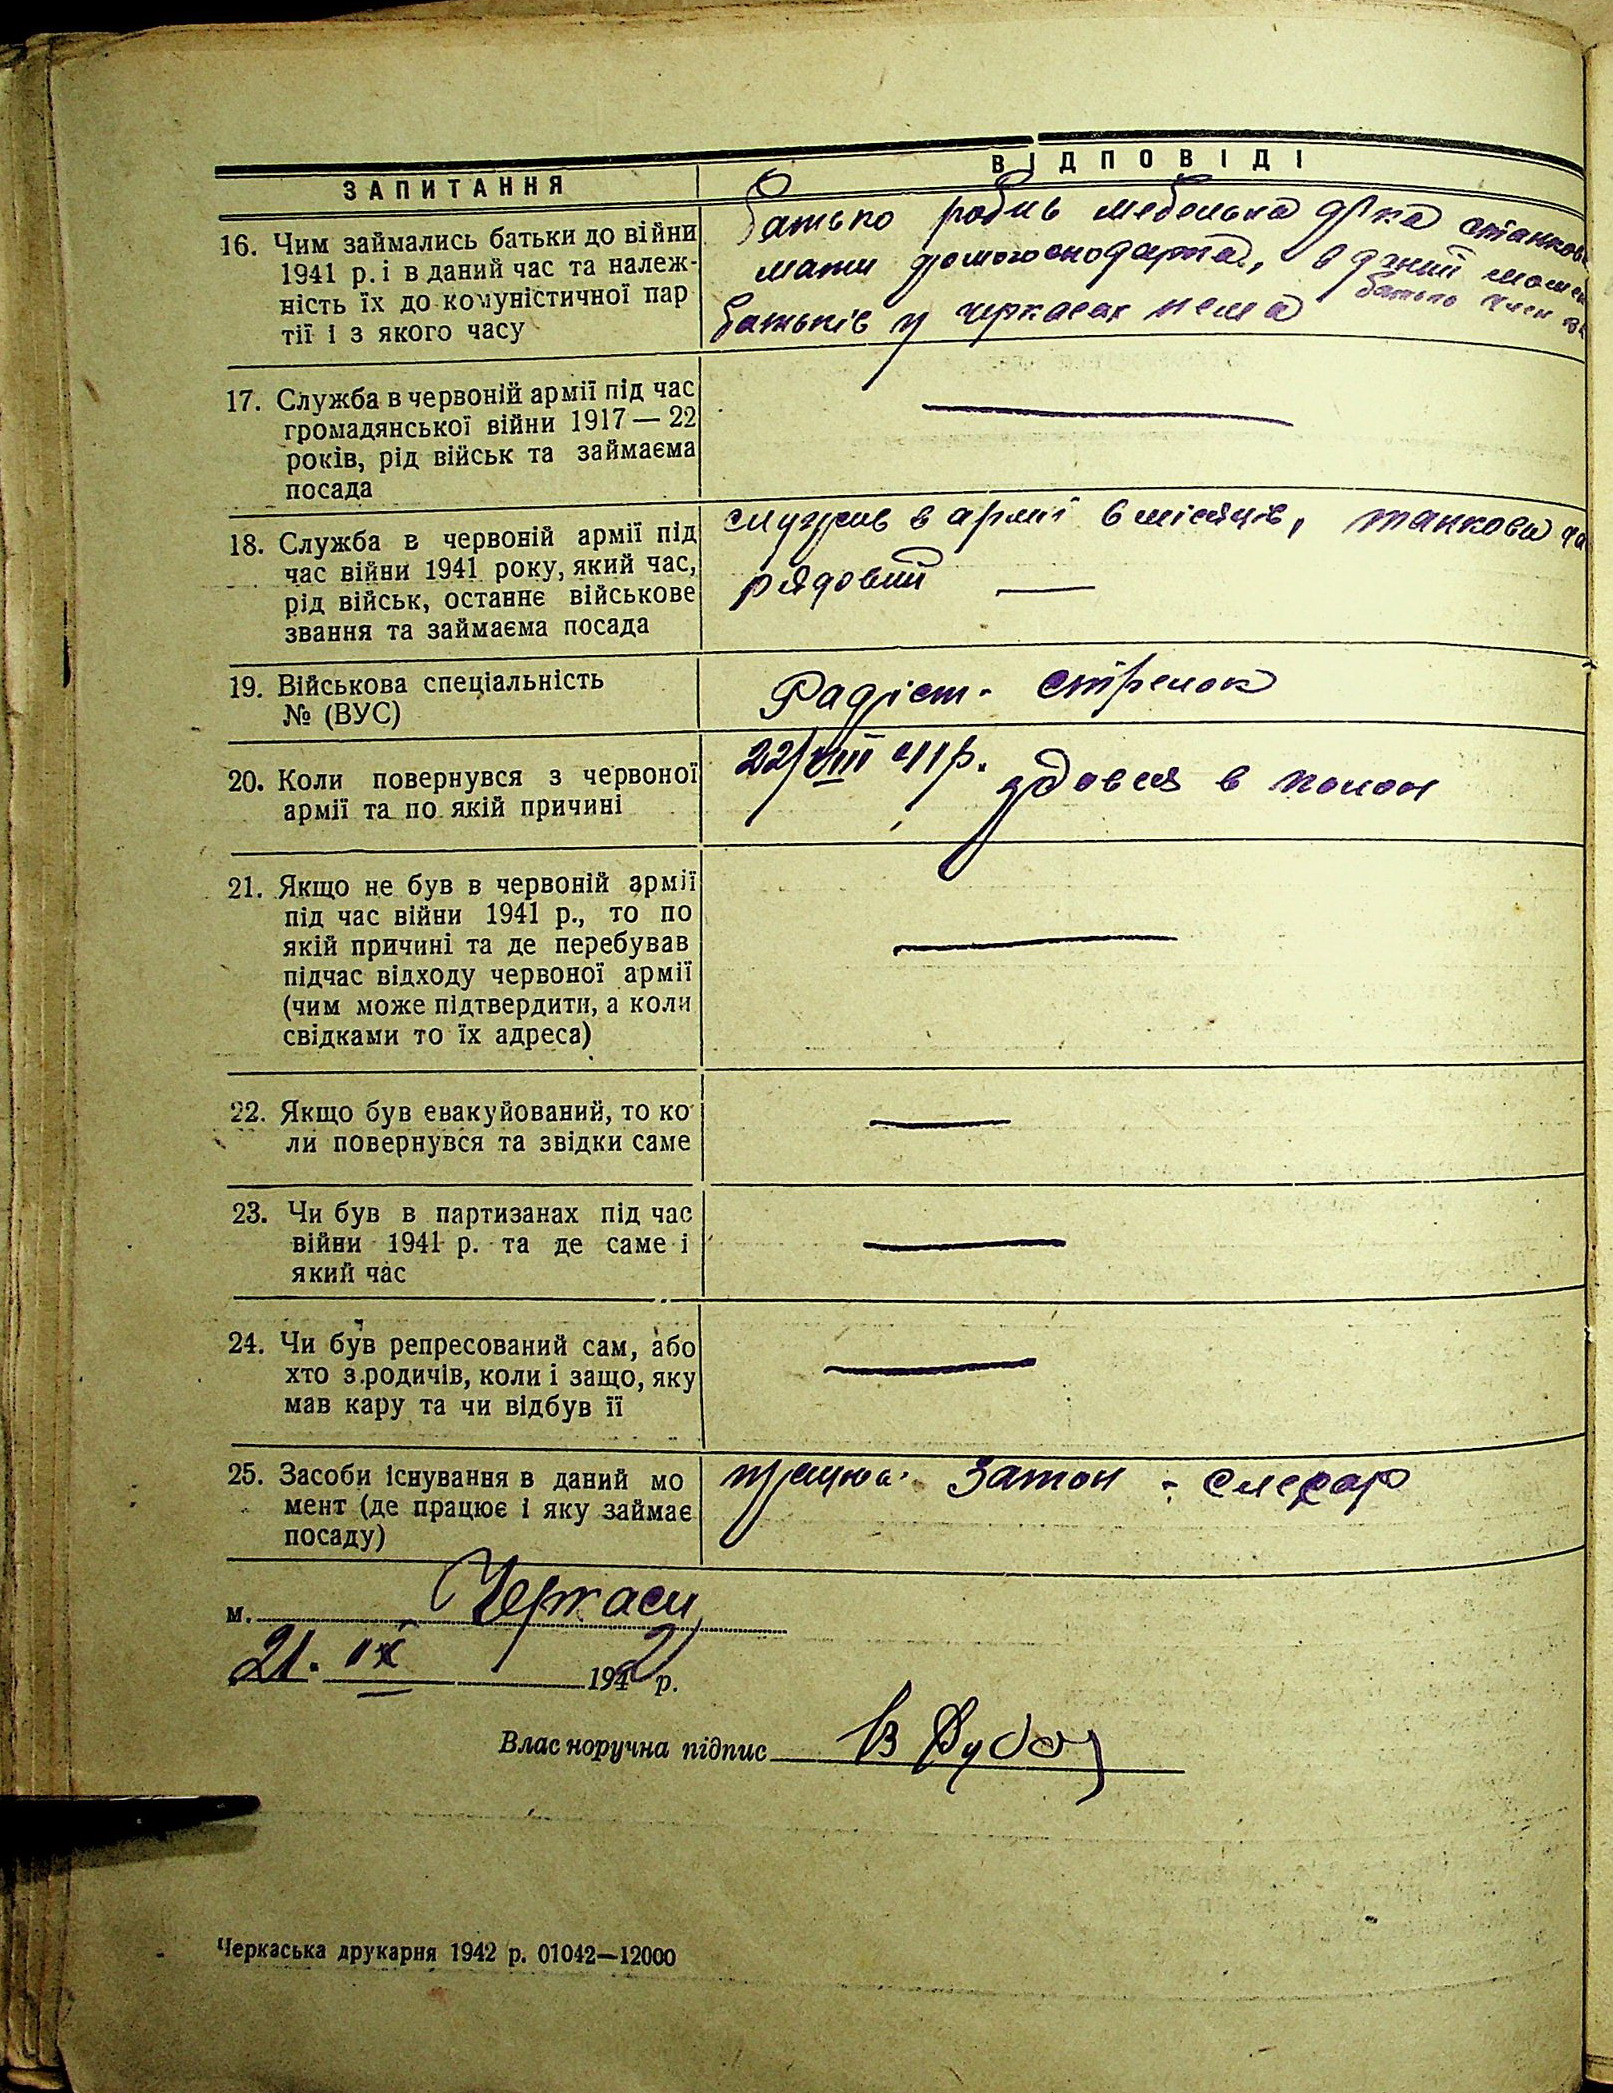 ЗАПИТАННЯ
ВІДПОВІДІ
16. Чим займались батьки до війни
1941 р. і в даний час та належ-
ність їх до комуністичної пар
тії і з якого часу
батько робив мебельна
мати домогосподарка, в даний
батьків у черкасах нема
батько член
17. Служба в червоній армії під час
громадянської війни 1917 — 22
років, рід військ та займаєма
посада
18. Служба в червоній армії під
час війни 1941 року, який час,
рід військ, останнє військове
звання та займаєма посада
служив в армії 6 місяців, танкова
рядовий —
19. Військова спеціальність
№ (ВУС)
Радіст - стрелок
20. Коли повернувся з червоної
армії та по якій причині
22/VIII 41 р. здовся в полон
21. Якщо не був в червоній армії
під час війни 1941 р., то по
якій причині та де перебував
підчас відходу червоної армії
(чим може підтвердити, а коли
свідками то їх адреса)
22. Якщо був евакуйований, то ко
ли повернувся та звідки саме
23. Чи був в партизанах під час
війни 1941 р. та де саме і
який час
24. Чи був репресований сам, або
хто з родичів, коли і защо, яку
мав кару та чи відбув її
25. Засоби існування в даний мо
мент (де працює і яку займає
посаду)
працюю Затон - слесар
м. Черкаси
21. IX 1942 р.
Власноручна підпис
Черкаська друкарня 1942 р. 01042—12000